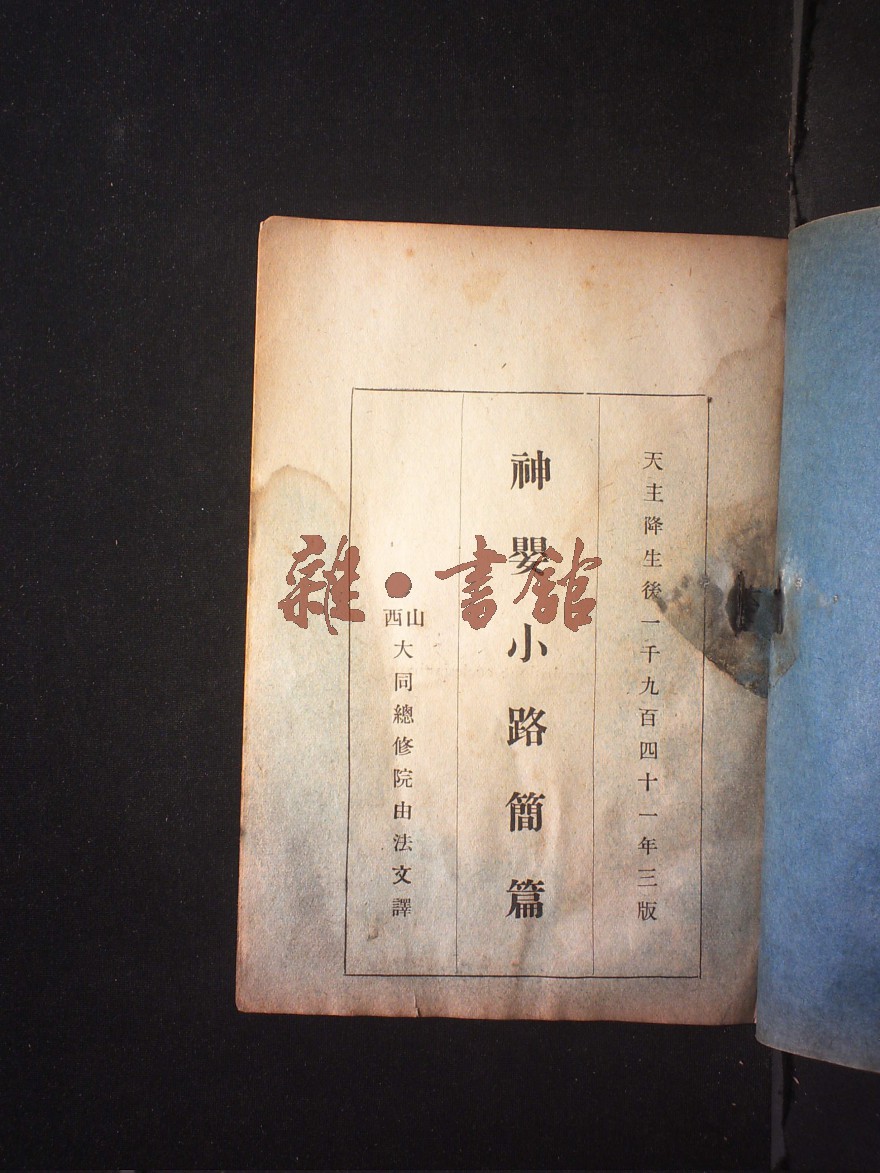 天主降生後一千九百四十一年三版
神嬰小路簡篇
山西
大同總修院由法文譯
雜•書館